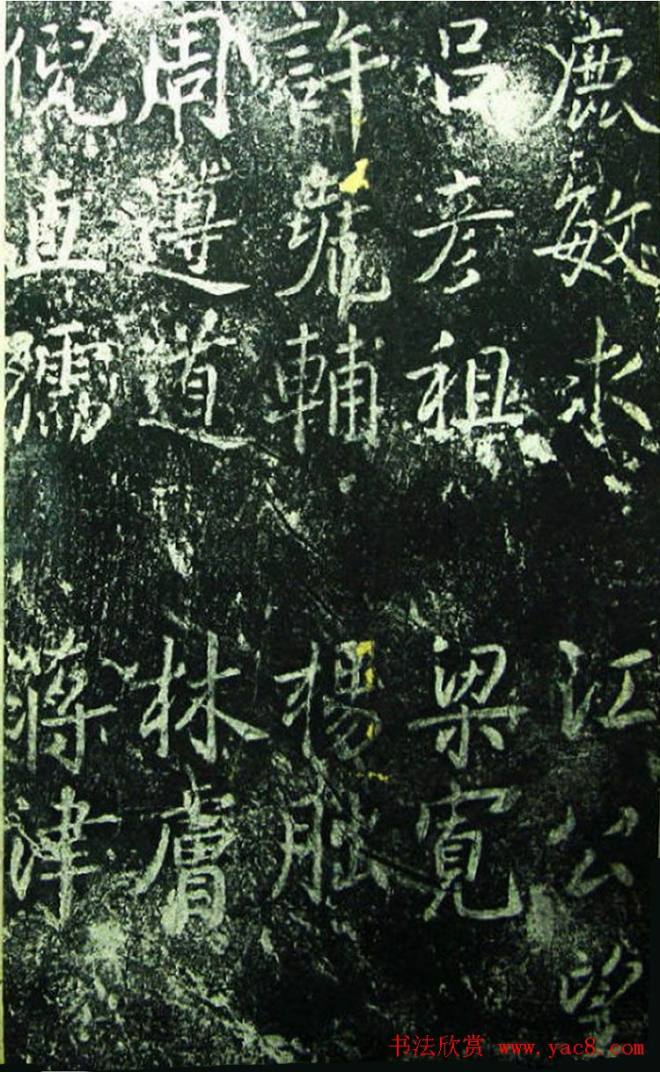 鹿敏求 江公望
吕彦祖 梁寬
許堯輔 楊朏
周遵道 林膚
倪直孺 蔣津
书法欣赏 www.yac8.com